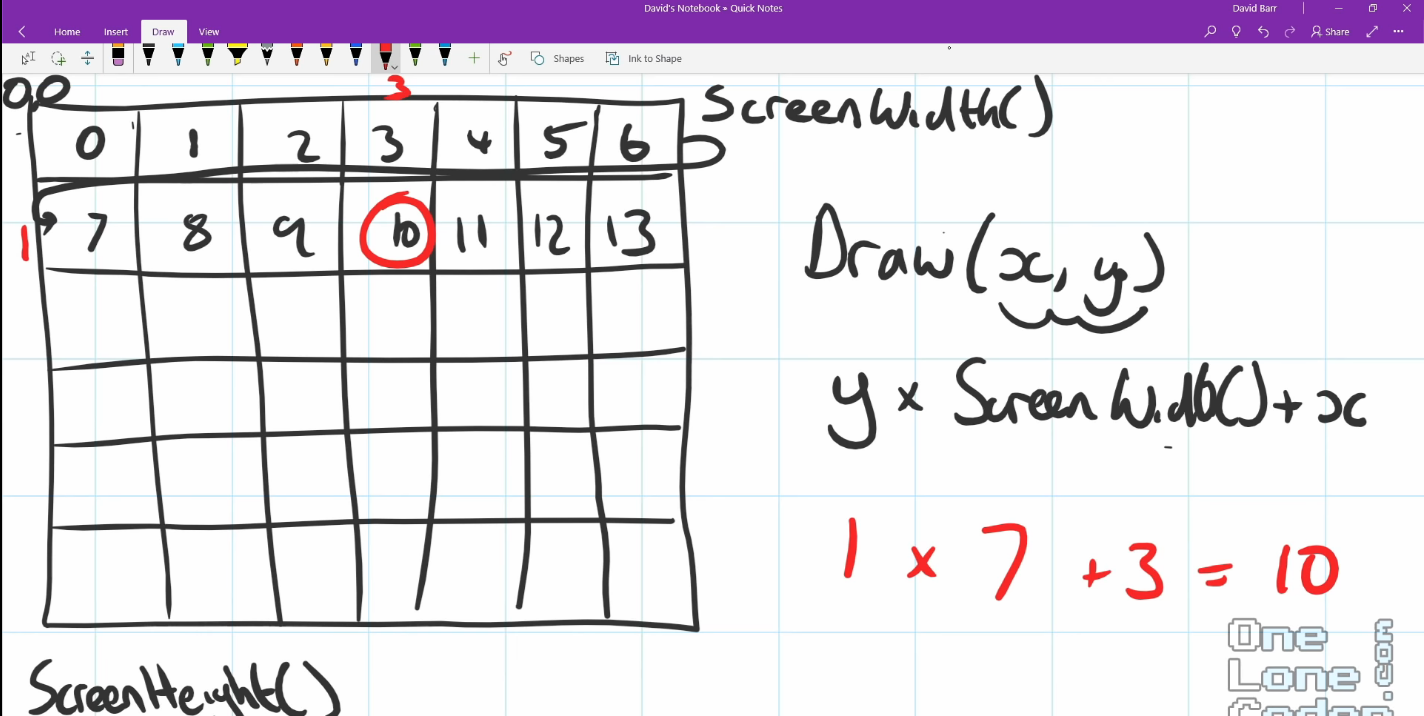 David's Notebook » Quick Notes
David Barr
Home Insert Draw View
Share
Shapes
Ink to Shape
0,0
3
ScreenWidth()
0 1 2 3 4 5 6
1
7 8 9 10 11 12 13
Draw(x, y)
y x ScreenWidth() + x
1 x 7 + 3 = 10
ScreenHeight()
One
Lone
Coder
.com